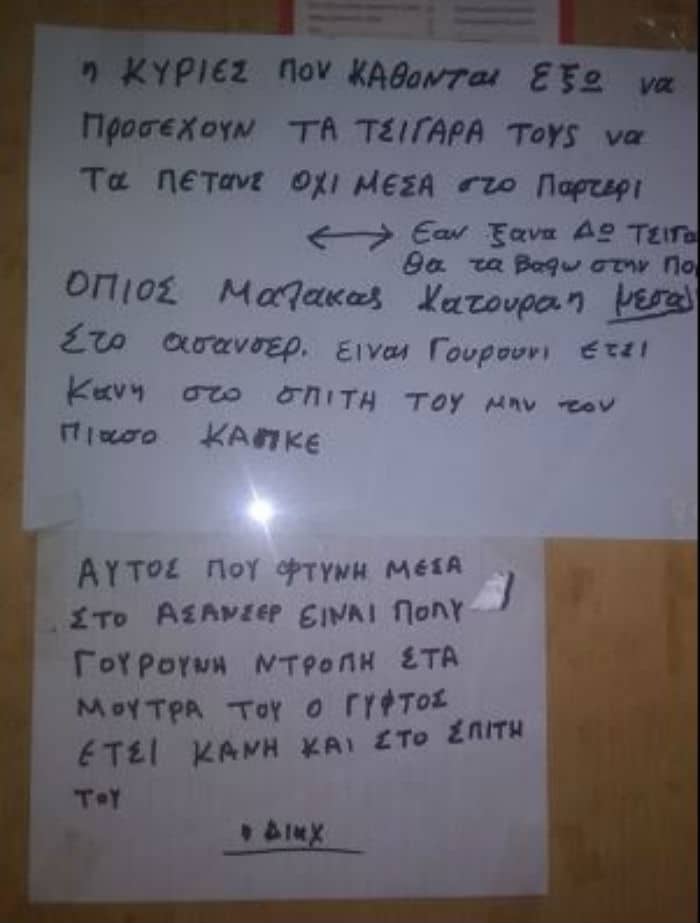 η ΚΥΡΙΕΣ ΠΟΥ ΚΑΘΟΝΤΑΙ ΕΞΩ να
ΠΡΟΣΕΧΟΥΝ ΤΑ ΤΣΙΓΑΡΑ ΤΟΥΣ να
Τα ΠΕΤΑΝΕ ΟΧΙ ΜΕΣΑ στο Παρτερι
Εαν ξανα Δω ΤΣΙΓΑ
Θα τα βαθω στην Πο
ΟΠΙΟΣ Μαλακας Κατουραη μεσα
Στο ασανσερ. ειναι Γουρουνι ετσι
Κανη στο σπιτη ΤΟΥ μην τον
Πιασο ΚΑΠΚΕ
ΑΥΤΟΣ ΠΟΥ ΦΤΥΝΗ ΜΕΣΑ
ΣΤΟ ΑΣΑΝΣΕΡ ΕΙΝΑΙ ΠΟΛΥ
ΓΟΥΡΟΥΝΗ ΝΤΡΟΠΗ ΣΤΑ
ΜΟΥΤΡΑ ΤΟΥ Ο ΓΥΦΤΟΣ
ΕΤΣΙ ΚΑΝΗ ΚΑΙ ΣΤΟ ΣΠΙΤΗ
ΤΟΥ
η ΔΙΑΧ